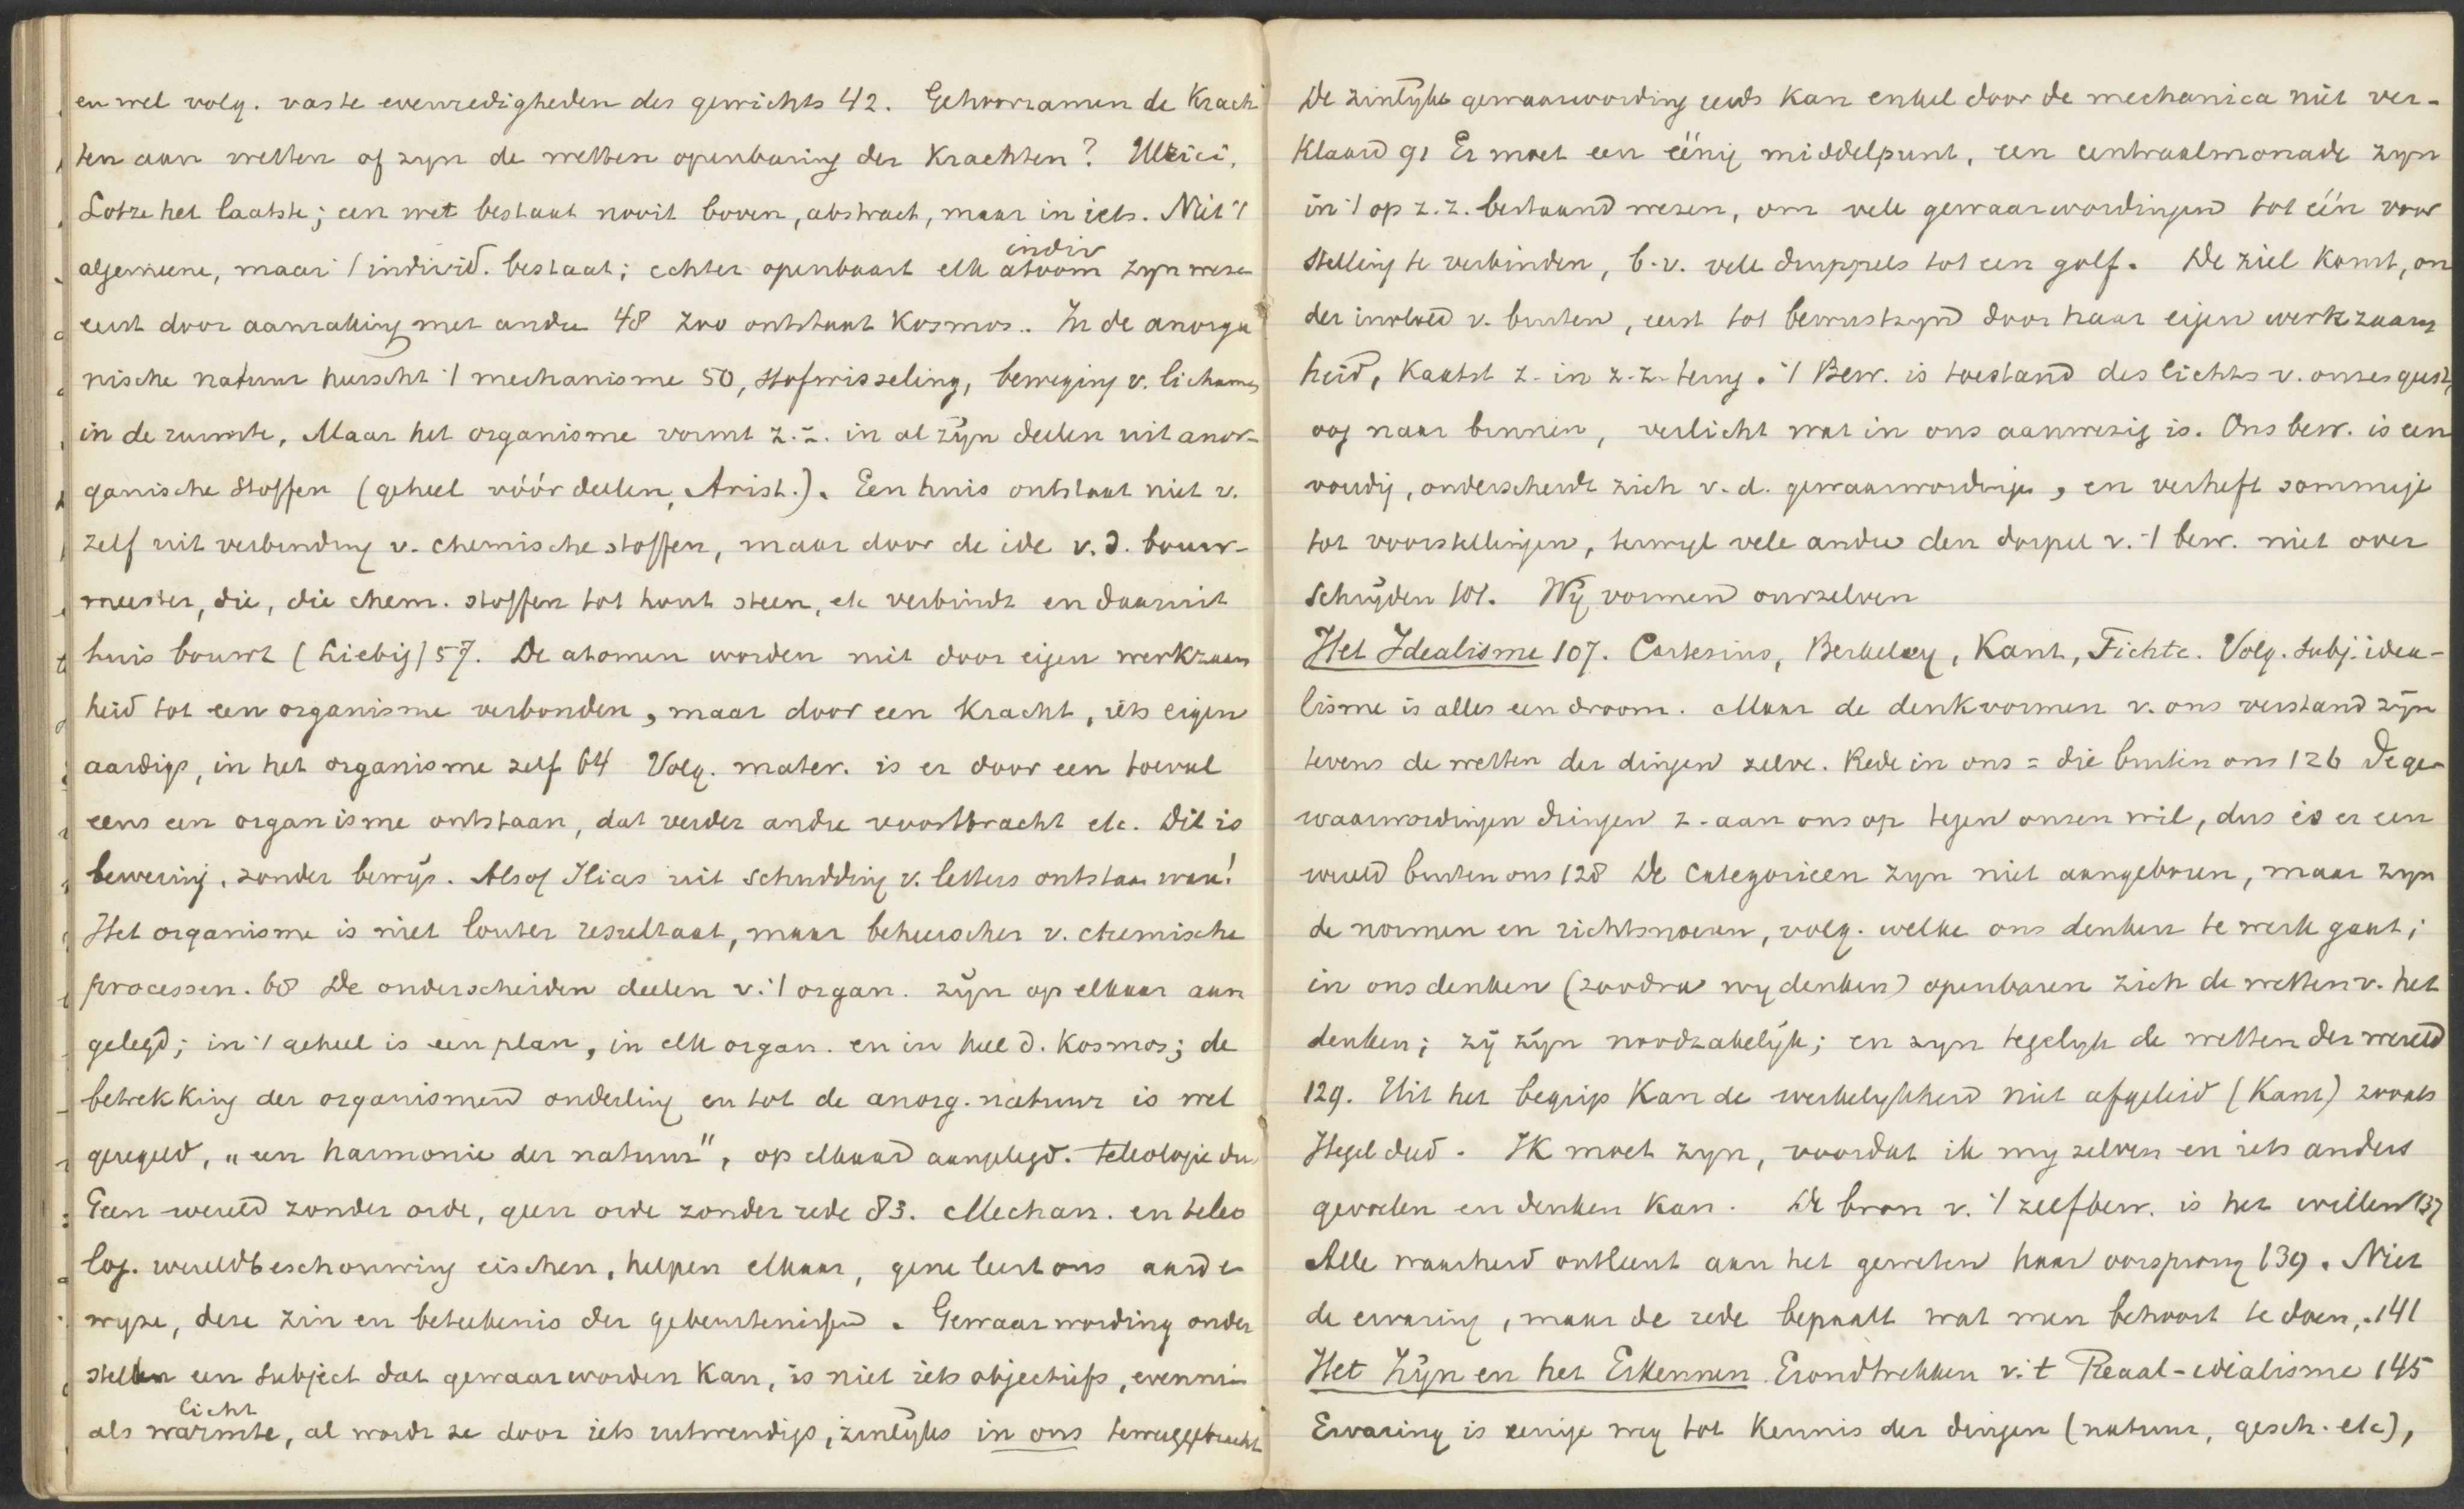 en wel volg. vaste evenredigheden des gewichts 42. Gehoorzamen de Krach
ten aan wetten of zyn de wetten openbaring der Krachten? Ulrici,
Lotze het laatste; een wet bestaat nooit boven, abstract, maar in iets. Niet 't
algemeene, maar 't individ. bestaat; echter openbaart elk atoom zyn weze
indiv
eerst door aanraking met andre 48 Zoo ontstaat Kosmos.. In de anorga
nische natuur heerscht 't mechanisme 50, stofwisseling, beweging v. lichamen
in de ruimte, Maar het organisme vormt z.z. in al zijn deelen uit anor-
ganische stoffen (geheel vóór deelen, Arist.). Een huis ontstaat niet v.
zelf uit verbinding v. chemische stoffen, maar door de idee v.d. bouw-
meester, die, die chem. stoffen tot hout steen, etc verbindt en daaruit
huis bouwt (Liebig) 57. De atomen worden niet door eigen werkzaam
heid tot een organisme verbonden, maar door een Kracht, iets eigen
aardigs, in het organisme zelf 64 Volg. mater. is er door een toeval
eens een organisme ontstaan, dat verder andre voortbracht etc. Dit is
bewering, zonder bewijs. Alsof Ilias uit schudding v. letters ontstaan waar!
Het organisme is niet louter resultaat, maar beheerscher v. chemische
processen. 68 De onderscheiden deelen v. 't organ. zijn op elkaar aan
gelegd; in 't geheel is een plan, in elk organ. en in heel d. Kosmos; de
betrekking der organismen onderling en tot de anorg. natuur is wel
geregeld, "een harmonie der natuur", op elkaar aangelegd. Teleologie dus
Geen wereld zonder orde, geen orde zonder rede 83. Mechan. en teleo
log. wereldbeschouwing eischen, helpen elkaar, gene leert ons aard en
wyze, deze zin en beteekenis der gebeurtenissen. Gewaarwording onder
stellen een subject dat gewaarworden kan, is niet iets objectiefs, evenmin
licht
als warmte, al wordt ze door iets uitwendigs, zinlijks in ons teweeggebracht
De zinlijke gewaarwording reeds kan enkel door de mechanica niet ver-
klaard 91 Er moet een eenig middelpunt, een centraalmonade zyn
in 't op z.z. bestaand wezen, om vele gewaarwordingen tot één voor
stelling te verbinden, b.v. vele druppels tot een golf. De ziel komt, on
der invloed v. buiten, eerst tot bewustzyn door haar eigen werkzaam
heid, Kaatst z. in z.z. terug. 't Bew. is toestand des lichts v. onses geest,
oog naar binnen, verlicht wat in ons aanwezig is. Ons bew. is een
voudig, onderscheidt zich v.d. gewaarwordingen, en verheft sommige
tot voorstellingen, terwyl vele andre den dorpel v. 't bew. niet over
schrijden 101. Wij vormen onszelven
Het Idealisme 107. Cartesius, Berkeley, Kant, Fichte. Volg. subj. idea-
lisme is alles een droom. Maar de denkvormen v. ons verstand zijn
tevens de wetten der dingen zelve. Rede in ons = die buiten ons 126 De ge-
waarwordingen dringen z. aan ons op tegen onzen wil, dus is er een
wereld buiten ons 128 De categorieen zyn niet aangeboren, maar zyn
de normen en richtsnoeren, volg. welke ons denken te werk gaat;
in ons denken (zoodra wy denken) openbaren zich de wetten v. het
denken; zij zijn noodzakelijk; en zyn tegelyk de wetten der wereld
129. Uit het begrip kan de werkelykheid niet afgeleid (Kant) zooals
Hegel deed. Ik moet zyn, voordat ik my zelven en iets anders
gevoelen en denken kan. De bron v. 't zelfbew. is het willen 137
Alle waarheid ontleent aan het geweten haar oorsprong 139. Niet
de ervaring, maar de rede bepaalt wat men behoort te doen, 141
Het Zijn en het Erkennen Grondtrekken v. 't Reaal-idealisme 145
Ervaring is eenige weg tot kennis der dingen (natuur, gesch. etc),